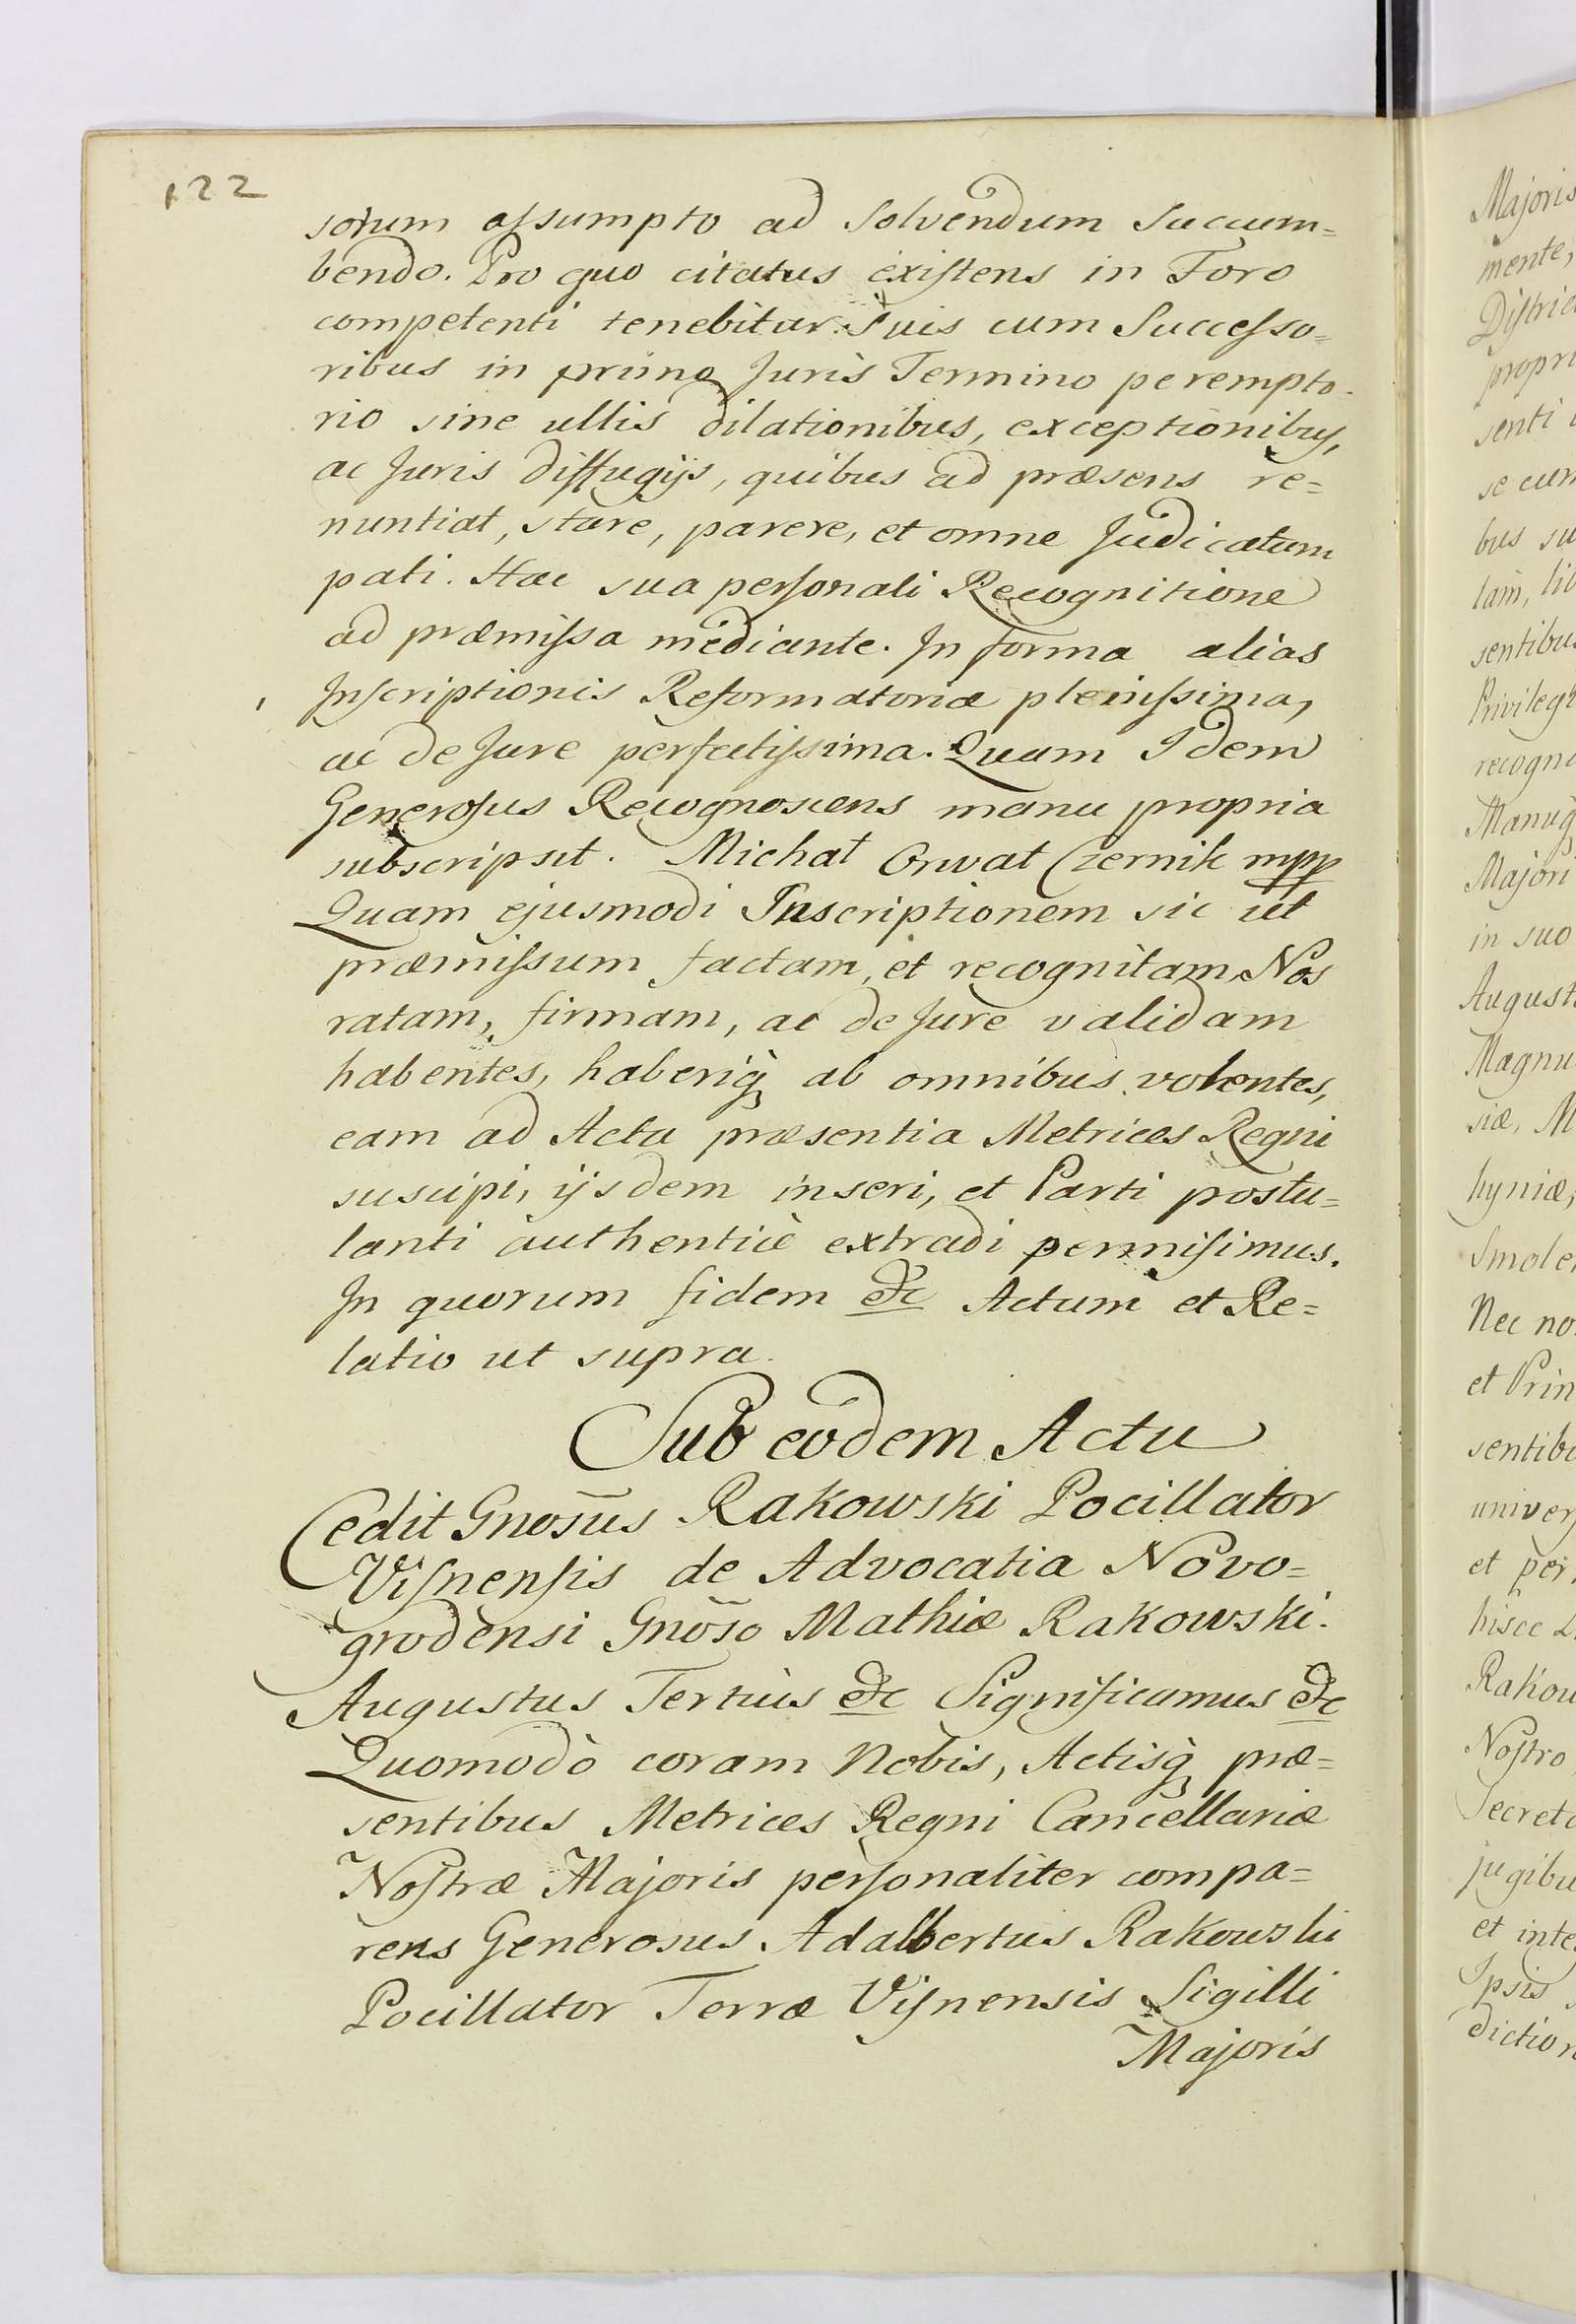 122
sorum assumpto ad Solvendum Succum=
bendo. Pro quo citatus existens in Foro
competenti tenebitur Suis cum Successo=
ribus in primo Juris Termino perempto-
rio sine ullis dilationibus, exceptionibus,
ac Juris diffugijs, quibus ad præsens re=
nuntiat, stare, parere, et omne Judicatum
pati. Hac sua personali Recognitione
ad præmissa mediante. In forma alias
Inscriptionis Reformatoriæ plenissima,
ac de Jure perfectissima. Quam Idem
Generosus Recognoscens manu propria
subscripsit. Michał Orwat Czernik mpp
Quam ejusmodi Inscriptionem sic ut
præmissum factam, et recognitam Nos
ratam, firmam, ac de Jure validam
habentes, haberiq̀ ab omnibus volentes,
eam ad Acta præsentia Metrices Regni
suscipi, ijsdem inseri, et Parti postu=
lanti authenticè extradi permisimus.
In quorum fidem &c Actum et Re=
latio ut supra.
Sub eodem Actu
Cedit Gnosus Rakowski Pocillator
Visnensis de Advocatia Novo=
grodensi Gnoso Mathiæ Rakowski.
Augustus Tertius &c Significamus &c
Quomodò coram Nobis, Actisq̀ præ=
sentibus Metrices Regni Cancellariæ
Nostræ Majoris personaliter compa=
rens Generosus Adalbertus Rakowski
Pocillator Terræ Visnensis Sigilli
Majoris
Majoris
mente,
propri
senti
se cum
bus su
lam, lib
sentibus
recogno
Majori
in suo
August
Magnu
siæ, M
hyniæ,
Smole
Nec no
et Prin
sentib
univers
et per
hisce L
Rakow
Nostro
Secret
jugibu
et inte
Ipsis
diction